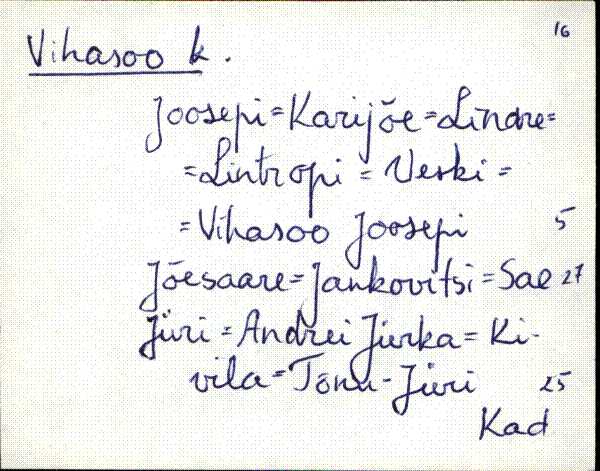 16
Vihasoo k.
Joosepi = Karijõe = Lindre =
= Lintropi = Veski =
= Vihasoo Joosepi 5
Jõesaare = Jankovitsi = Sae 27
Jüri = Andrei Jürka = Ki-
vila = Tõnu-Jüri 25
Kad